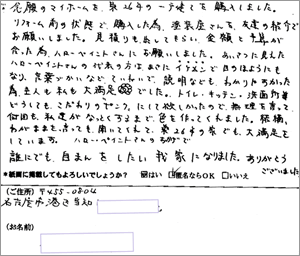 念願のマイホームを、築26年の一戸建てを購入しました。
リフォーム前の状態で、購入した為、塗装屋さんを、友達の紹介で
お願いしました。見積りも出してもらい、金額と予算が
合った為、ハローペイントさんにお願いしました。あいさつに見えた
ハローペイントさんの代表の方はまさにイケメンで目のほようにも
なり、言葉づかいなどていねいで、説明なども、わかりやすかった
為、主人も私も大満足でした。トイレ・キッチン・洗面所
どうしても、こだわりのピンクにして欲しかったので、無理を言って、
何回も、私達がなっとくするまで、色を作ってくれました。結構、
わがままを言っても、聞いてくれて、築26年の家でも、大満足を
しています。ハローペイントさんのおかげで
誰にでも、自まんをしたい我家になりました。ありがとう
ございました
*紙面に掲載してもよろしいでしょうか? はい 匿名ならOK □いいえ
(ご住所)〒455-0804
名古屋市港区当知
(お名前)